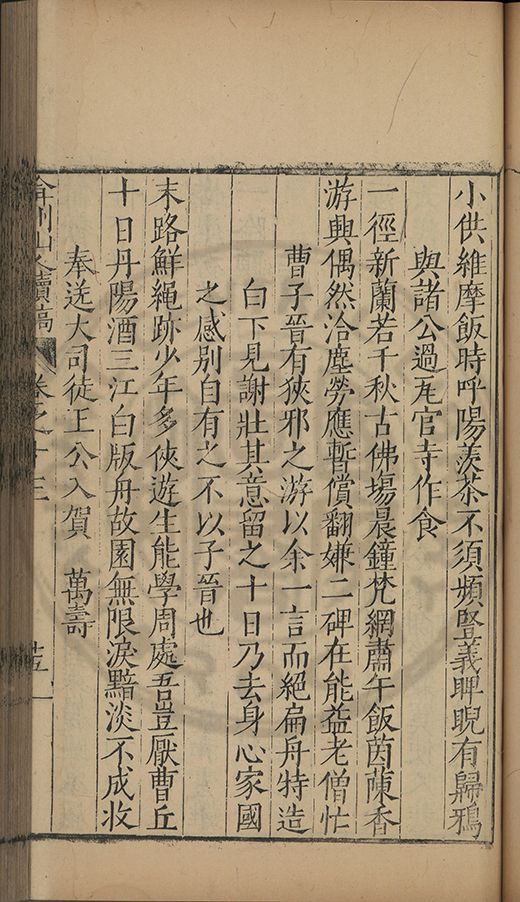 小供維摩飯時呼陽羨茶不須頻豎義睥睨有歸鴉
與諸公過瓦官寺作食
一徑新蘭若千秋古佛場晨鐘梵網肅午飯茵蔯香
游興偶然洽塵勞應暫償翻嫌二碑在能益老僧忙
曹子晉有狹邪之游以余一言而絕扁舟特造
白下見謝壯其意留之十日乃去身心家國
之感別自有之不以子晉也
末路鮮繩跡少年多俠遊生能學周處吾豈厭曹丘
十日丹陽酒三江白版舟故園無限淚黯淡不成收
奉送大司徒王公入賀 萬壽
弇州山人續稿 卷之十三 十五